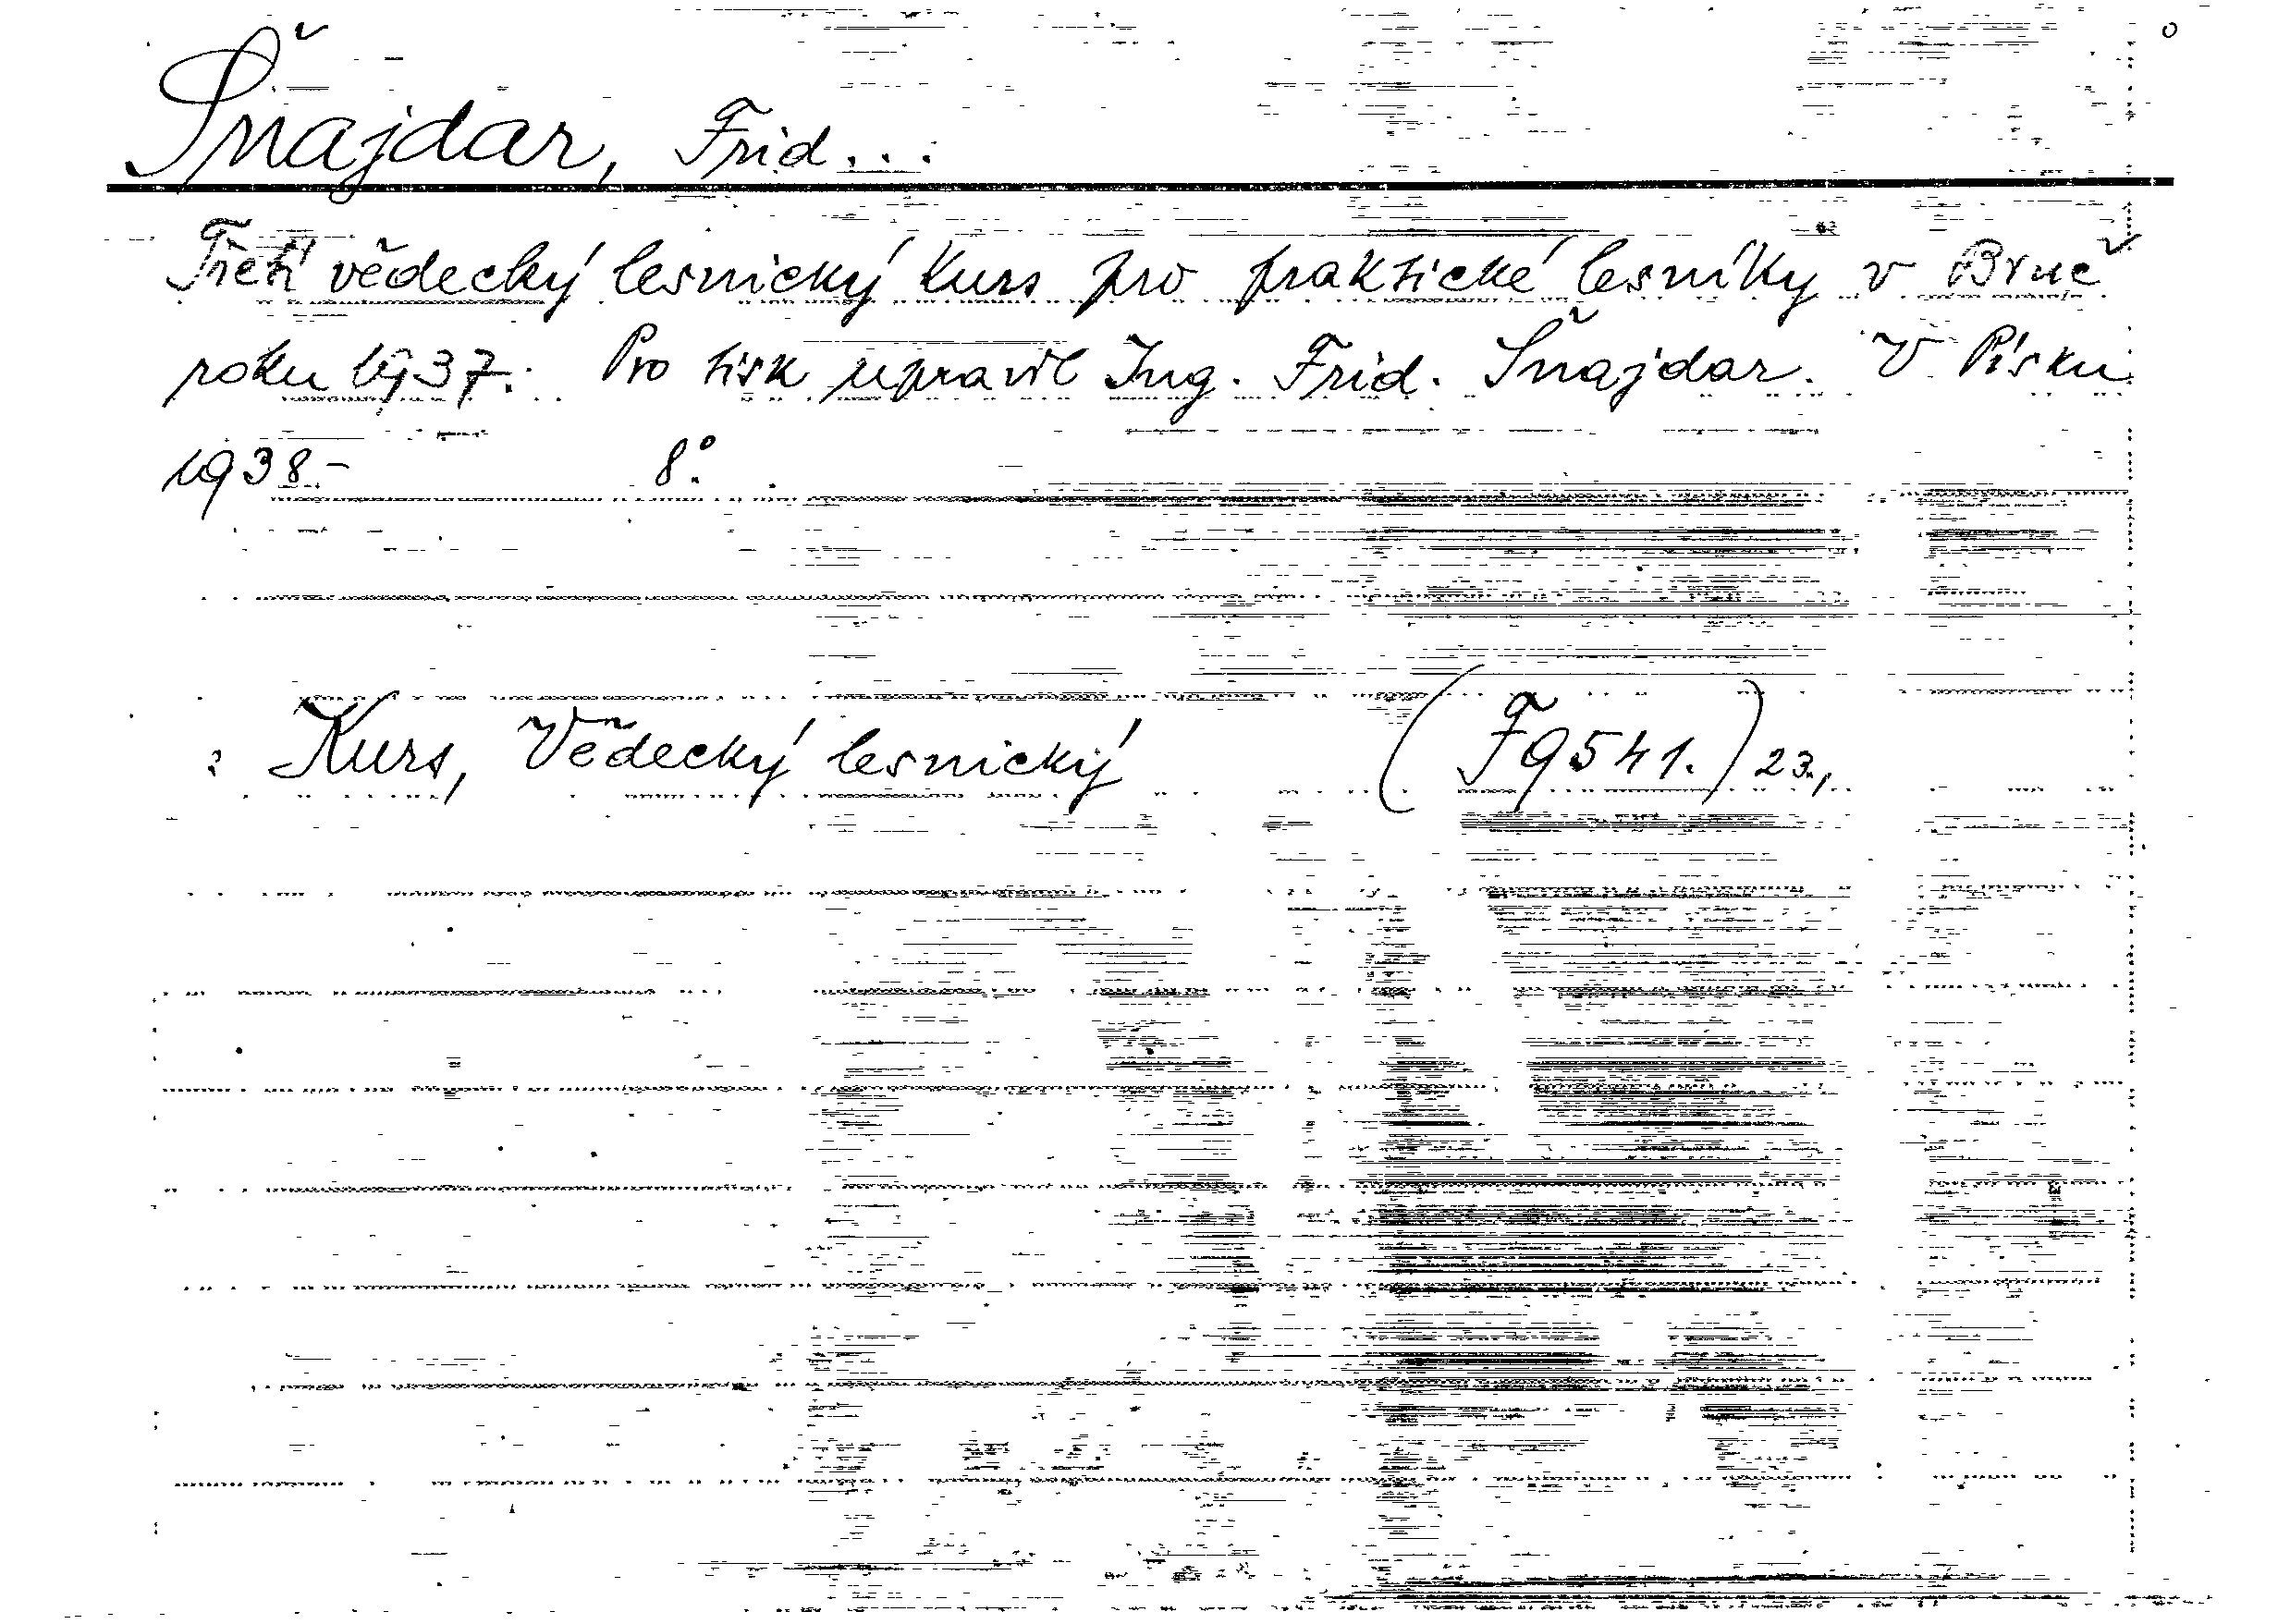 Šnajdar, Frid...
Třetí vědecký lesnický kurs pro praktické lesníky v Brně
roku 1937. Pro tisk upravil Ing. Frid. Šnajdar. V Písku
1938.- 8°.
: Kurs, Vědecký lesnický (F 9541.) 23.,